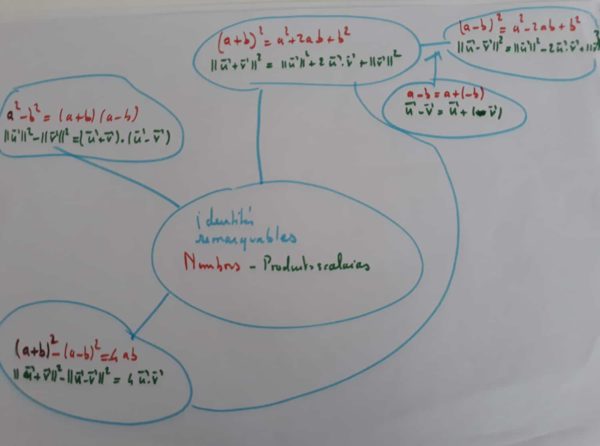 (a+b)² = a²+2ab+b²
||u⃗+v⃗||² = ||u⃗||²+2u⃗·v⃗+||v⃗||²
(a-b)² = a²-2ab+b²
||u⃗-v⃗||² = ||u⃗||²-2u⃗·v⃗+||v⃗||²
a-b = a+(-b)
u⃗-v⃗ = u⃗+(-v⃗)
a²-b² = (a+b)(a-b)
||u⃗||²-||v⃗||² = (u⃗+v⃗)·(u⃗-v⃗)
identités
remarquables
Nombres - Produits scalaires
(a+b)²-(a-b)² = 4ab
||u⃗+v⃗||²-||u⃗-v⃗||² = 4u⃗·v⃗